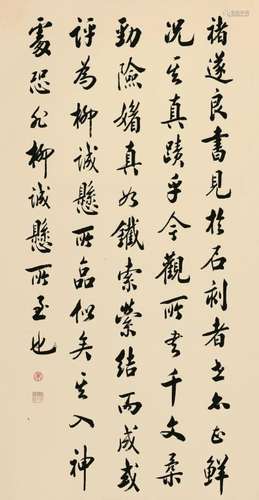 褚遂良書見於石刻者亦不鮮
况其真蹟乎今觀所書千文柔
勁險媚真如鐵索縈結而成或
評為柳誠懸所臨似矣其入神
處恐非柳誠懸所至也